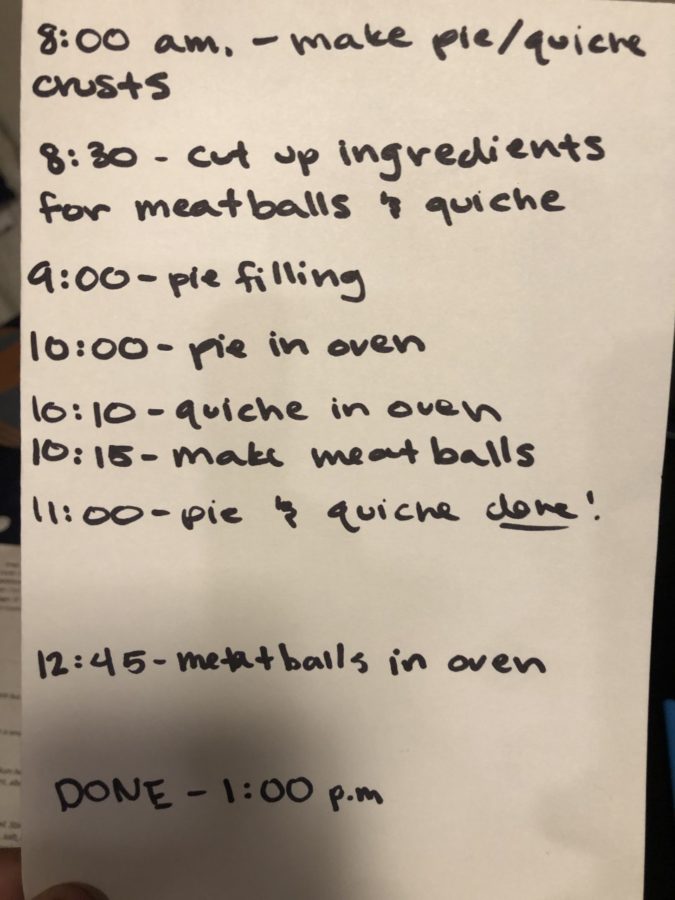 8:00 am. - make pie/quiche
crusts
8:30 - cut up ingredients
for meatballs & quiche
9:00 - pie filling
10:00 - pie in oven
10:10 - quiche in oven
10:15 - make meat balls
11:00 - pie & quiche done!
12:45 - meatballs in oven
DONE - 1:00 p.m